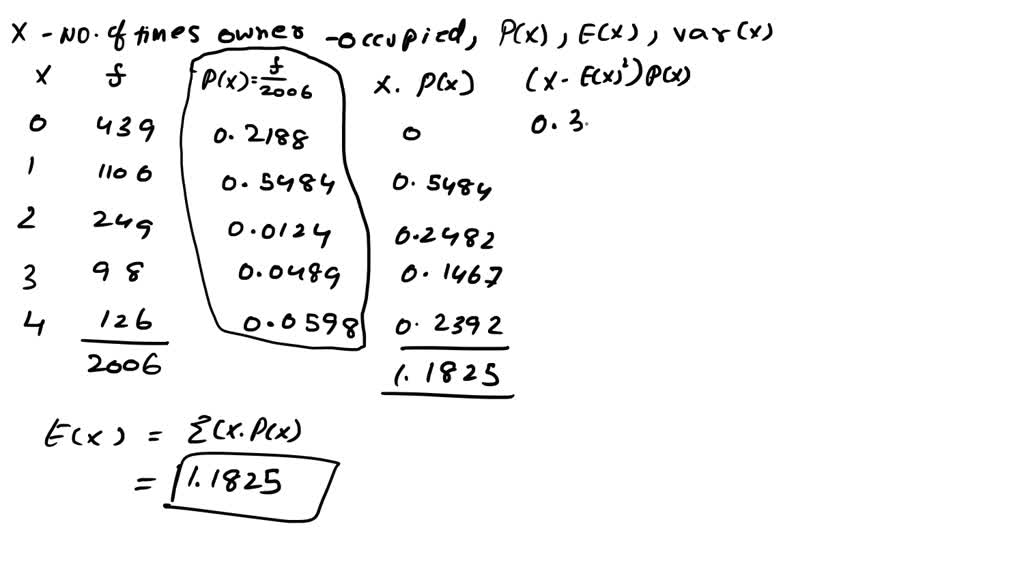 X - NO. of times owner -occupied, P(x), E(x), var(x)
X f P(x)=f/2006 X. P(x) (x- E(x)²)P(x)
0 439 0.2188 0 0.3
1 1106 0.5484 0.5484
2 249 0.0124 0.2482
3 98 0.0489 0.1467
4 126 0.0598 0.2392
2006 1.1825
E(x) = Σ(x.P(x)
= 1.1825